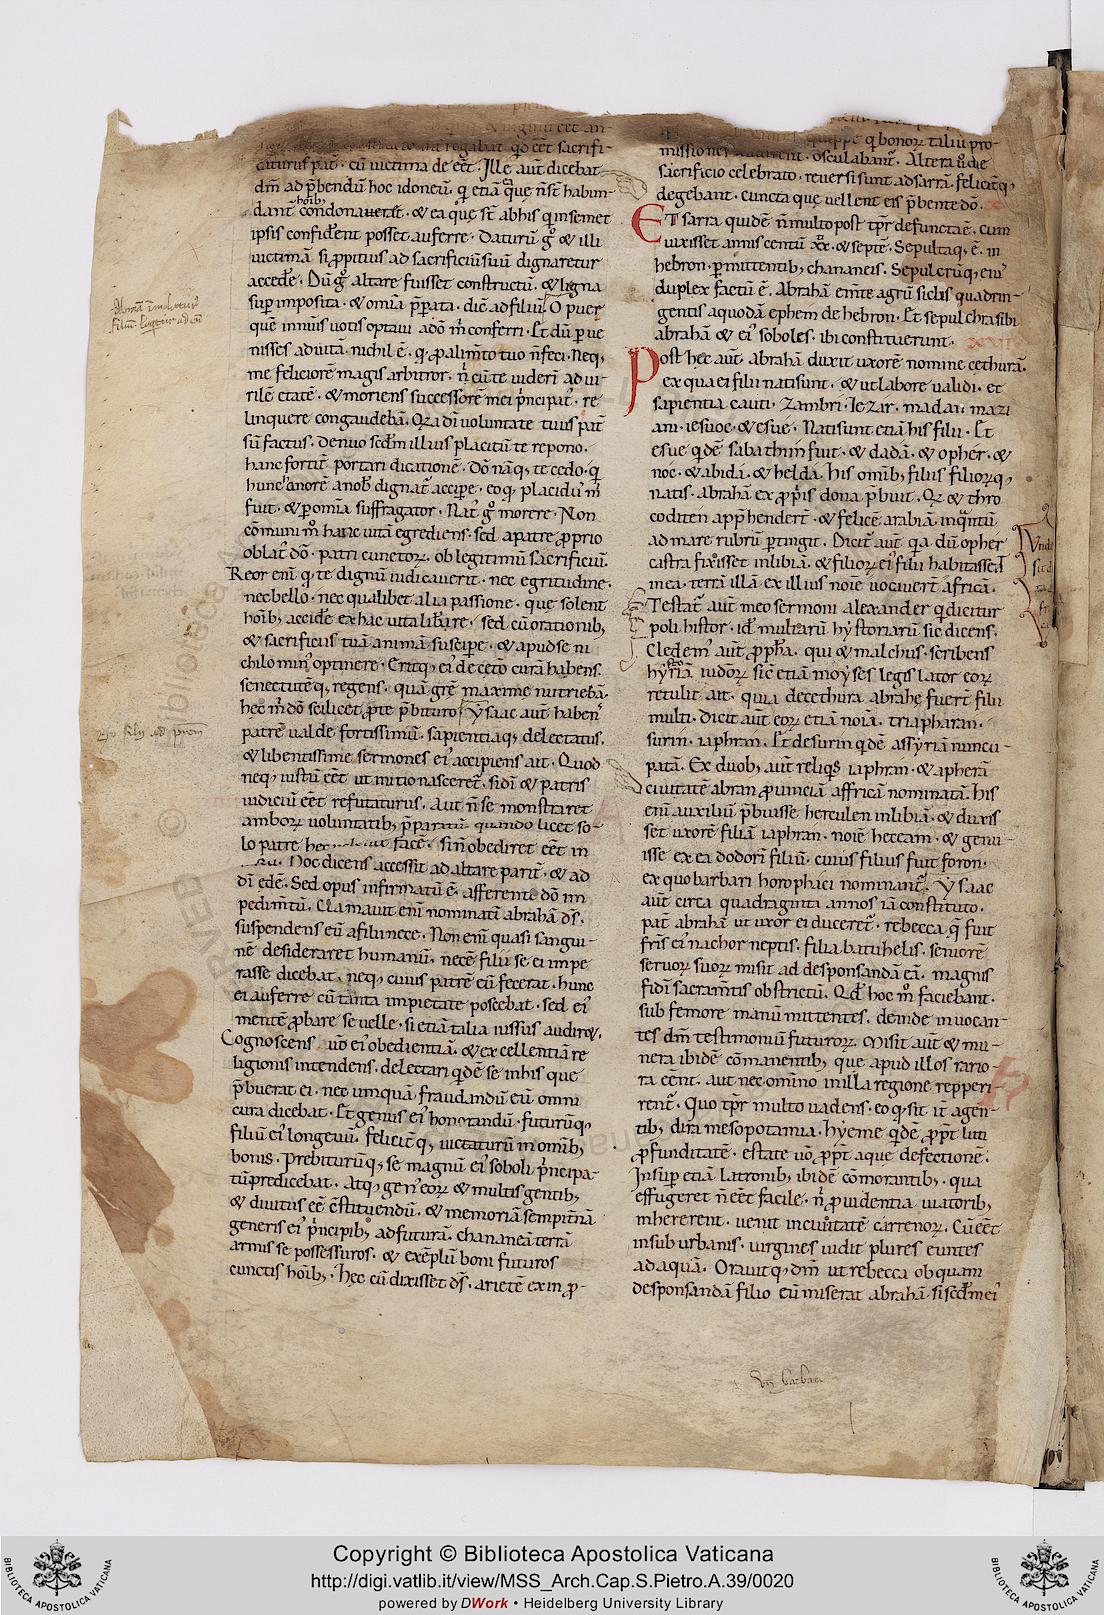 caturus pat̄. cū uictima deeēt. Ille aut̄ dicebat
dm̄ ad p̄bendū hoc idoneū. qꝛ etiā quę n̄ st̄ habun
dant̄ hoīb; condonaueret. & ea quę st̄ abhis qui semet
ipsis confident posset auferre. Daturū gͦ & illi
uictimā si ꝓpitius ad sacrificiū suū dignaretur
accedere. Dū gͦ altare fuisset constructū. & ligna
sup̄ imposita. & omīa p̄parata. dic̄ ad filiū. O puer
quē innūis uotis optaui adō m̄ conferri. Et dū peruē
nisses aduitā. nichil ē. qꝫ ꝓ alim̄to tuo n̄ feci. Neqꝫ
me feliciorē magis arbitror. n̄ cū te uiderī ad ui
rilē etatē. & moriens successorē mei p̄ncipat᷒. re
linquere congaudebā. Qꝛ a dī uoluntate tuus pat̄
sū factus. denuo scdm̄ illius placitū te repono.
hanc fortit̄ portari dicationē. Dō nāqꝫ te cedo. qꝛ
hunc honorē a nob̄ dignat̄ accipe. eo qꝫ placid᷒ m̄
fuit. & ꝑ omīa suffragator. Nat᷒ gͦ morere. Non
cōmuni mͦ hanc uitā egrediens. sed a patre ꝓprio
oblat᷒ dō. patri cunctoꝝ. ob legitimū sacrificiū.
Reor enī qꝫ te dignū iudicauerit. nec egritudine.
nec bello. nec qualibet alia passione. quę solent
hoīb; accidere ex hac uita liberare. sed cū orationib;
& sacrificiis tuā animā suscipe. & apud se ni
chilomin᷒ optinere. Eritqꝫ ei᷒ de cetō curā habens.
senectutēqꝫ regens. quā gr̄e maxime nutriebā.
hec m̄ dō scilicet ꝓ te p̄bituro. Ysaac aut̄ habens
patrē ualde fortissimū. sapientiaqꝫ delectatus.
& libentissime sermones ei᷒ accipiens ait. Quod
neqꝫ iustū eēt ut initio nasceret̄. si dī & patris
iudiciū eēt refutaturus. Aut n̄ se monstraret
amboꝝ uoluntatib; p̄paratū. quando licet so-
lo patre facē. si n̄ obediret eēt in
Hoc dicens accessit ad altare parit̄. & ad
dī edē. Sed opus infirmatū ē. afferente dō im
pedim̄tū. Clamauit enī nominatī abrahā ds̄.
suspendens eū a filii nece. Non enī quasi sangui-
nē desideraret humanū. necē filii se ei impe
rasse dicebat. neqꝫ cuius patrē eū fecerat. hunc
ei auferre cū tanta impietate poscebat. sed ei᷒
mentē ꝓbare se uelle. si etiā talia iussus audiret.
Cognoscens uō ei᷒ obedientiā. & excellentiā re
ligionis intendens. delectari qdē se in his que
p̄buerat ei. nec umquā fraudandū eū omni
cura dicebat. Et genus ei᷒ honorandū. futurūqꝫ
filiū ei᷒ longeuū. felicit̄qꝫ uictaturū in omīb;
bonis. Prebiturūqꝫ se magnū ei᷒ soboli p̄ncipa-
tū predicebat. Atqꝫ gen᷒ eoꝝ & multis gentib;
& diuitiis eē cͦstituendū. & memoriā sempit̄nā
generis ei᷒ p̄ncipib; adfuturā. chananeā terrā
armis se possessuros. & exēplū boni futuros
cunctis hoīb;. hęc cū dixisset ds̄. arietē ex in ꝓ-
sacrificio celebrato. reuersi sunt ad sarrā. felicit̄qꝫ
degebant. cuncta quę uellent eis p̄bente dō.
ET sarra quidē n̄ multo post tp̄r defuncta ē. cum
uixisset annis centū xx & septē. Sepultaqꝫ ē. in
hebron. ꝑmittentib; chananeis. Sepulcrūqꝫ ei᷒
duplex factū ē. Abrahā em̄te agrū siclis quadrin-
gentis a quodā ephem de hebron. Et sepulchra sibi
abrahā & ei᷒ soboles. ibi constituerunt.
Post hęc aut̄. abrahā duxit uxorē nomine cethurā.
ex qua ei filii nati sunt. & ut labore ualidi. et
sapientia cauti. Zambri. Iezar. madai. mazi
ani. iesuoe. & esue. Nati sunt etiā his filii. Et
esue qdē sabathin fuit. & dadā. & opher. &
noe. & abida. & helda. His omīb; filiis filioꝝqꝫ
natis. abrahā ex ꝓpriis dona p̄buit. Qꝛ & thro
coditen app̄hendert̄. & felicē arabiā. in qͣntū
ad mare rubrū ꝑtingit. Dicit̄ aut̄ qꝛ dū opher
castra fixisset in libiā. & filioꝝ ei᷒ filii habitassent
in ea. terrā illā ex illius noīe uocauert̄ africā.
Testat̄ aut̄ meo sermoni alexander qꝛ dicitur
poli histor. id᷒ multarū hystoriarū sic dicens.
Cledem᷒ aut̄ ꝓpha. qui & malchus. scribens
hystoriā iudeoꝝ sic etiā moyses legis lator eoꝝ
retulit ait. quia de cethura abrahę fuert̄ filii
multi. Dicit aut̄ eoꝝ etiā noīa. tria. phāran.
surin. iaphran. Et de surin qdē assyriā nuncu-
patā. Ex duob; aut̄ reliqis iaphran. & apherā
ciuitatē abran ꝓuinciā affricā nominatā. His
enī auxiliū p̄buisse herculen in libiā. & duxis
set uxorē filiā iaphran. noīe heccam. & genu-
isse ex ea dodorī filiū. cuius filius fuit foron.
ex quo barbari horophaci nominant̄. Ysaac
aut̄ circa quadraginta annos iā constituto.
pat̄ abrahā ut uxor ei duceret̄. rebecca. q̄ fuit
fris̄ ei᷒ nachor neptis. filia batuhelis. seniorē
seruoꝝ suoꝝ misit ad desponsandā eā. magnis
fidī sacram̄tis obstrictū. Qd̄ hoc mͦ faciebant.
sub femore manū mittentes. deinde inuocan-
tes dm̄ testimoniū futuroꝝ. Misit aut̄ & mu-
nera ibidē cōmanentib; que apud illos rario-
ra eēnt. aut nec omīno in illa regione repperi-
rent̄. Quo tp̄r multo uadens. eo qꝫ sit it̄ agen-
tib; dira mesopotamia. hyeme qdē ꝓpt̄ luti
ꝓfunditatē. estate uō ꝓpt̄ aque defectionē.
Insup̄ etiā latronib; ibidē cōmorantib;. qua
effugeret n̄ eēt facile. n̄ ꝓuidentia uiatorib;
inhererent. uenit in ciuitatē carrenoꝝ. Cū eēt
in suburbanis. uirgines uidit plures euntes
ad aquā. Orauitqꝫ dm̄ ut rebecca ob quam
desponsandā filio eū miserat abrahā. si scdm̄ ei᷒
Copyright © Biblioteca Apostolica Vaticana
http://digi.vatlib.it/view/MSS_Arch.Cap.S.Pietro.A.39/0020
powered by DWork • Heidelberg University Library
BIBLIOTECA APOSTOLICA VATICANA
BIBLIOTECA APOSTOLICA VATICANA